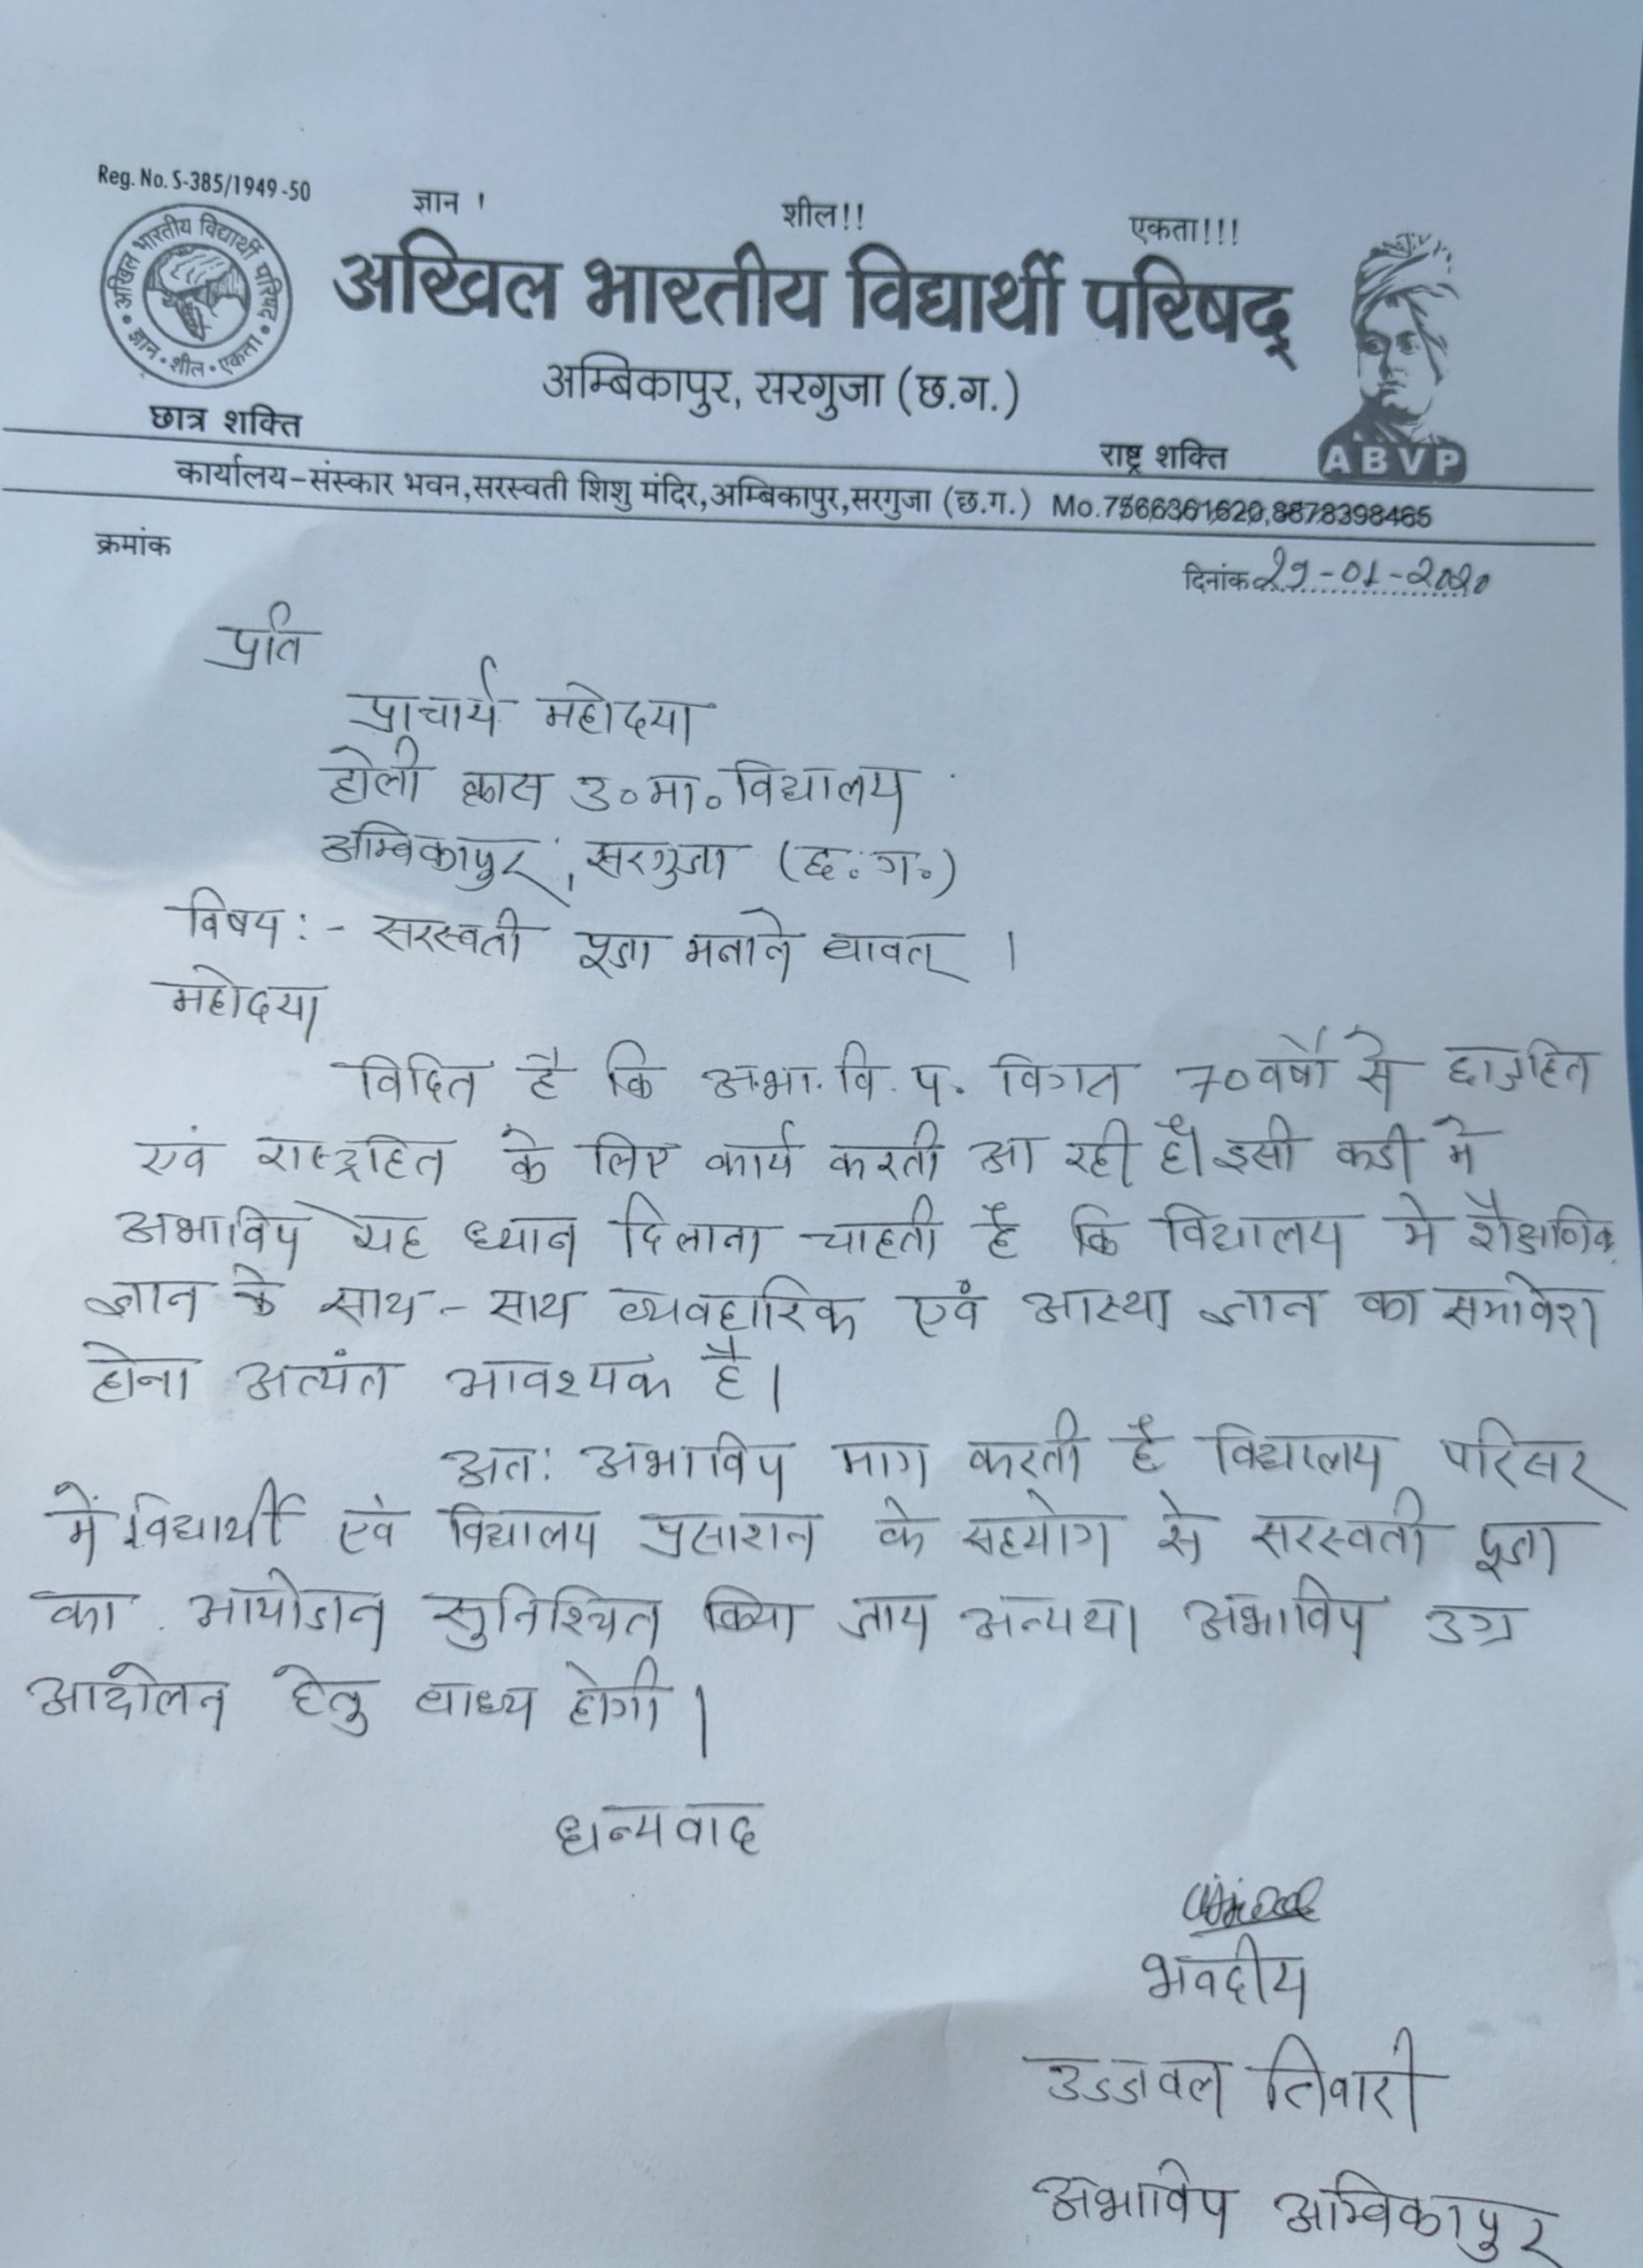 Reg. No. S-385/1949-50
ज्ञान ! शील!! एकता!!!
अखिल भारतीय विद्यार्थी परिषद्
अखिल भारतीय विद्यार्थी परिषद
ज्ञान • शील • एकता
अम्बिकापुर, सरगुजा (छ.ग.)
छात्र शक्ति
राष्ट्र शक्ति
ABVP
कार्यालय-संस्कार भवन,सरस्वती शिशु मंदिर,अम्बिकापुर,सरगुजा (छ.ग.) Mo.
क्रमांक
दिनांक 29-01-2020
प्रति
प्राचार्य महोदया
होली क्रास उ०मा० विद्यालय
अम्बिकापुर, सरगुजा (छ.ग.)
विषय :- सरस्वती पूजा मनाने बावत् ।
महोदया
विदित है कि अ.भा.वि.प. विगत 70 वर्षो से छात्रहित
एवं राष्ट्रहित के लिए कार्य करती आ रही है। इसी कडी मे
अभाविप यह ध्यान दिलाना चाहती है कि विद्यालय मे शैक्षणिक
ज्ञान के साथ-साथ व्यवहारिक एवं आस्था ज्ञान का समावेश
होना अत्यंत आवश्यक है।
अतः अभाविप माग करती है विद्यालय परिसर
में विद्यार्थी एवं विद्यालय प्रसाशन के सहयोग से सरस्वती पूजा
का आयोजन सुनिश्चित किया जाय अन्यथा अभाविप उग्र
आदोलन हेतु बाध्य होगी।
धन्यवाद
भवदीय
उज्जवल तिवारी
अभाविप अम्बिकापुर